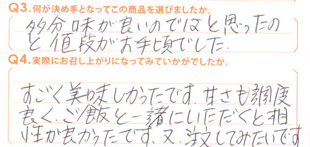 Q3.何が決め手となってこの商品を選びましたか。
多分味が良いのではと思ったの
と値段がお手頃でした.
Q4.実際にお召し上がりになってみていかがでしたか。
すごく美味しかったです.甘さも調度
良く.ご飯と一緒にいただくと相
性が良かったです.又.注文してみたいです